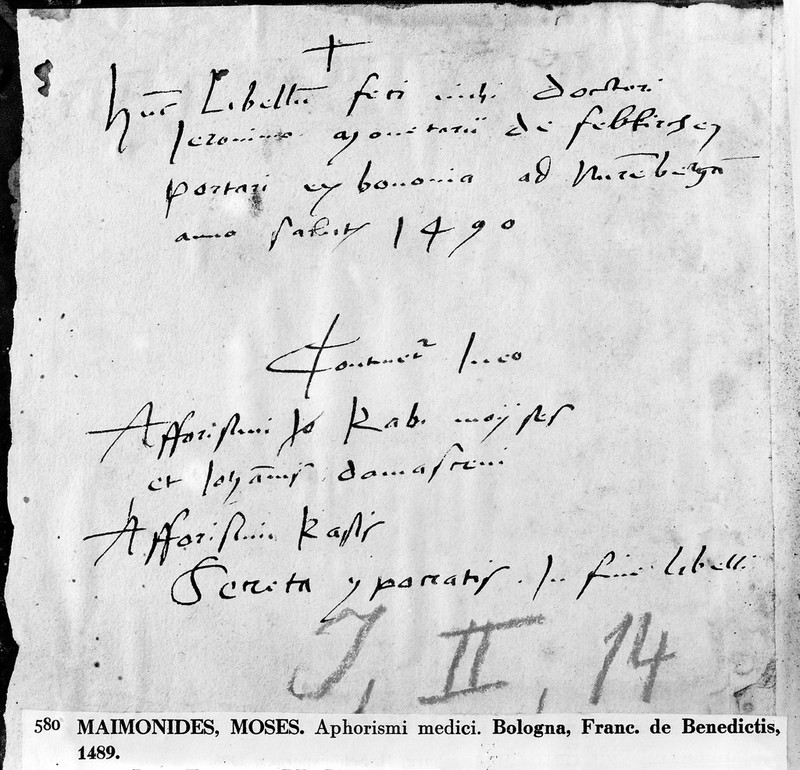 Hūc Libellū feci michi doctori
Jeronimo Monetarii de feltkirchen
portari ex bononia ad Nurēbergā
anno salutis 1490
Continet In eo
Afforismi Rabi moijses
et Johānis damasceni
Afforismi Rasis
Secreta ypocratis. In fine libelli
I, II, 14
580 MAIMONIDES, MOSES. Aphorismi medici. Bologna, Franc. de Benedictis,
1489.